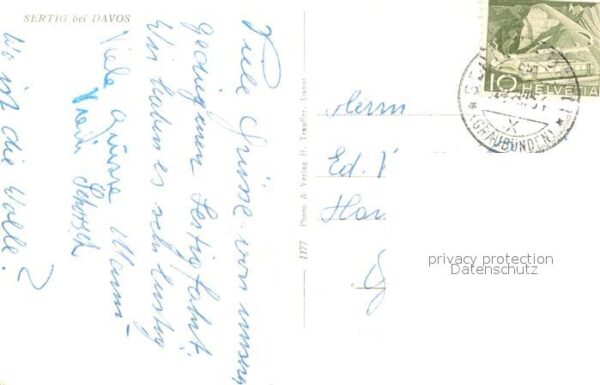 SERTIG bei DAVOS
Viele Grüsse von unserer
gediegenen Sertigfahrt.
Wir haben es sehr lustig
Viele Grüsse Mami
Wo ist die Wolle?
1177 Photo & Verlag H. Trauffer, Davos
10 HELVETIA
(GRAUBÜNDEN)
Herrn
Ed.
privacy protection
Datenschutz